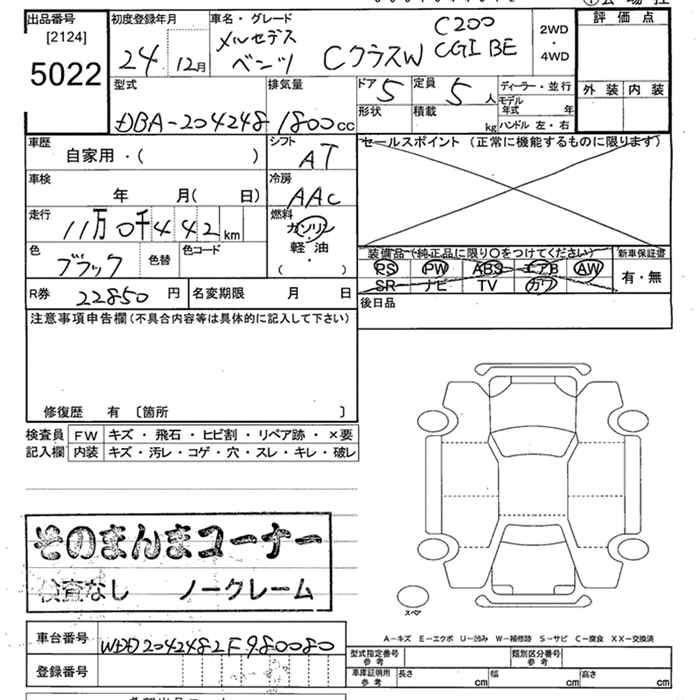 出品番号
[2124]
5022
初度登録年月
24 12月
車名・グレード
メルセデス
ベンツ CクラスW
C200
CGI BE
2WD
・
4WD
評価点
外装 内装
型式
DBA-204248
排気量
1800cc
ドア 5
定員 5 人
形状
積載 kg
ディーラー・並行
モデル年式 年
ハンドル 左・右
車歴
自家用・( )
シフト
AT
セールスポイント (正常に機能するものに限ります)
車検
年 月( 日)
冷房
AAC
走行
11万0千442km
燃料
ガソリン
軽・油
・
( )
色
ブラック
色替
色コード
装備品(純正品に限り○をつけてください)
PS PW ABS エアB AW
SR ナビ TV カワ
新車保証書
有・無
R券 22850 円
名変期限 月 日
後日品
注意事項申告欄(不具合内容等は具体的に記入して下さい)
修復歴 有 〔箇所 〕
検査員 FW キズ・飛石・ヒビ割・リペア跡・×要
記入欄 内装 キズ・汚レ・コゲ・穴・スレ・キレ・破レ
そのまんまコーナー
検査なし ノークレーム
スペア
A−キズ E−エクボ U−凹み W−補修跡 S−サビ C−腐食 XX−交換済
車台番号 WDD2042482F980080
登録番号
型式指定番号
参考
類別区分番号
参考
車庫証明用
参考
長さ cm
幅 cm
高さ cm